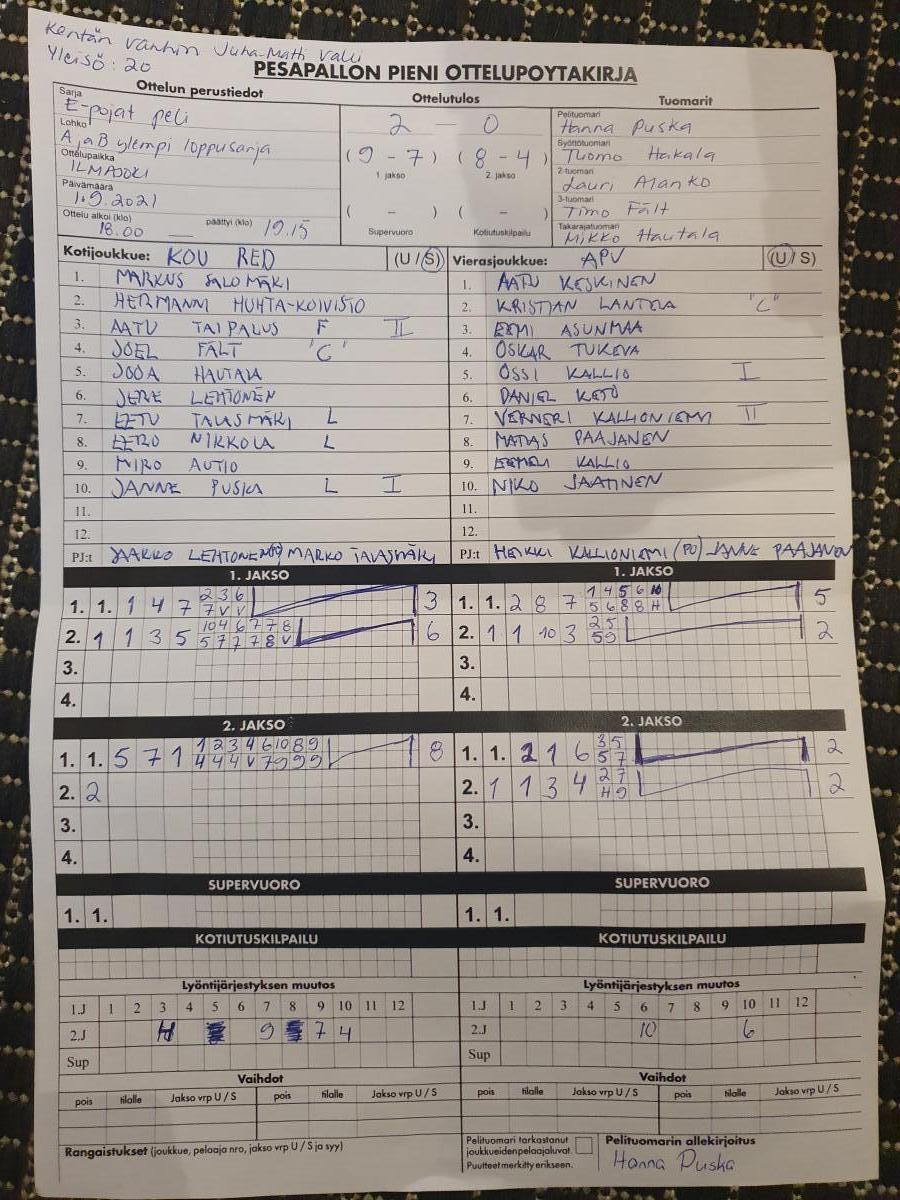 Kentän vanhin Juha-Matti Valli
Yleisö: 20
PESAPALLON PIENI OTTELUPOYTAKIRJA
Ottelun perustiedot
Ottelutulos
Tuomarit
Sarja
E-pojat peli
Lohko
A ja B ylempi loppusarja
Ottelupaikka
ILMAJOKI
Päivämäärä
1.9.2021
Ottelu alkoi (klo) päättyi (klo)
18.00 — 19.15
2 - 0
(9 - 7) (8 - 4)
1. jakso 2. jakso
( - ) ( - )
Supervuoro Kotiutuskilpailu
Pelituomari
Hanna Puska
Syöttötuomari
Tuomo Hakala
2-tuomari
Lauri Alanko
3-tuomari
Timo Fält
Takarajatuomari
Mikko Hautala
Kotijoukkue: KOU RED (U / S)
1. MARKUS SALOMÄKI
2. HERMANNI HUHTA-KOIVISTO
3. AATU TAIPALUS F II
4. JOEL FÄLT "C"
5. JOOA HAUTALA
6. JERE LEHTONEN
7. EETU TALASMÄKI L
8. EERO NIKKOLA L
9. MIRO AUTIO
10. JANNE PUSKA L I
11.
12.
PJ:t JAAKKO LEHTONEN MARKO TALASMÄKI
Vierasjoukkue: APV (U / S)
1. AATU KESKINEN
2. KRISTIAN LANTELA "C"
3. EEMI ASUNMAA
4. OSKAR TUKEVA
5. OSSI KALLIO I
6. DANIEL KETO
7. VERNERI KALLIONIEMI II
8. MATIAS PAAJANEN
9. EEMELI KALLIO
10. NIKO SAATINEN
11.
12.
PJ:t HEIKKI KALLIONIEMI (PJ) JANNE PAAJANEN
1. JAKSO
1. 1. 1 4 7 2 3 6 3
7 V V
2. 1 1 3 5 10 4 6 7 7 8 6
5 7 7 7 8 V
3.
4.
1. JAKSO
1. 1. 2 8 7 1 4 5 6 10 5
5 6 8 8 H
2. 1 1 10 3 2 5 2
5 9
3.
4.
2. JAKSO
1. 1. 5 7 1 1 2 3 4 6 10 8 9 8
4 4 4 V 7 9 9 9
2. 2
3.
4.
2. JAKSO
1. 1. 2 1 6 3 5 2
5 7
2. 1 1 3 4 2 7 2
H 9
3.
4.
SUPERVUORO
1. 1.
SUPERVUORO
1. 1.
KOTIUTUSKILPAILU
KOTIUTUSKILPAILU
Lyöntijärjestyksen muutos
1.J 1 2 3 4 5 6 7 8 9 10 11 12
2.J 9 7 4
Sup
Lyöntijärjestyksen muutos
1.J 1 2 3 4 5 6 7 8 9 10 11 12
2.J 10 6
Sup
Vaihdot
pois tilalle Jakso vrp U / S pois tilalle Jakso vrp U / S
Vaihdot
pois tilalle Jakso vrp U / S pois tilalle Jakso vrp U / S
Rangaistukset (joukkue, pelaaja nro, jakso vrp U / S ja syy)
Pelituomari tarkastanut
joukkueiden pelaajaluvat.
Puutteet merkitty erikseen.
Pelituomarin allekirjoitus
Hanna Puska